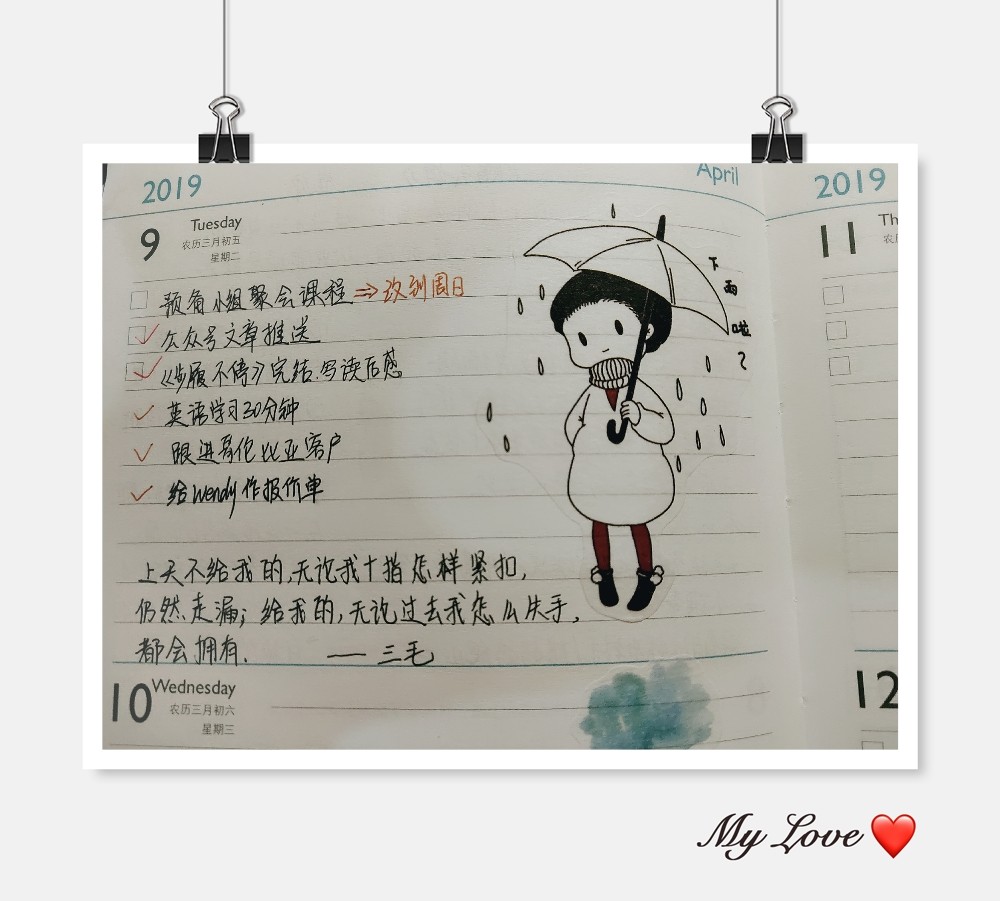 2019
April
2019
9
Tuesday
农历三月初五
星期二
预备小组聚会课程⇒改到周日
公众号文章推送
《步履不停》完结.写读后感
英语学习30分钟
跟进哥伦比亚客户
给wendy作报价单
下雨啦
上天不给我的,无论我十指怎样紧扣,
仍然走漏;给我的,无论过去我怎么失手,
都会拥有.
——三毛
10
Wednesday
农历三月初六
星期三
11
Th
农历
12
My Love